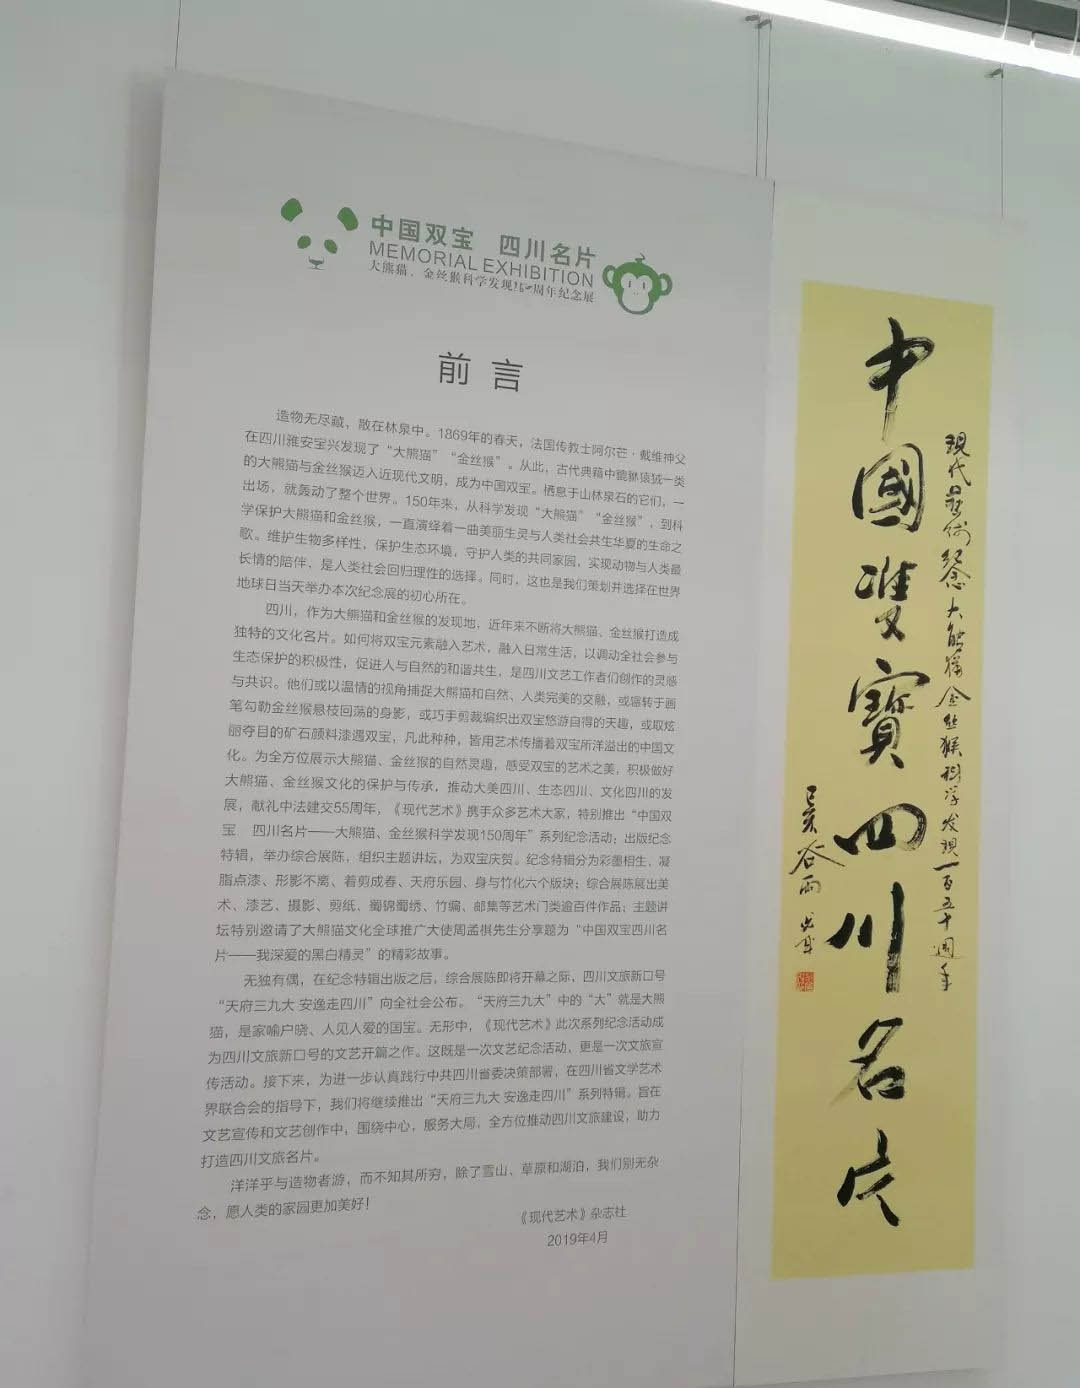 中国双宝 四川名片
MEMORIAL EXHIBITION
大熊猫、金丝猴科学发现150周年纪念展
前言
造物无尽藏，散在林泉中。1869年的春天，法国传教士阿尔芒·戴维神父
在四川雅安宝兴发现了“大熊猫”“金丝猴”。从此，古代典籍中貔貅猿狨一类
的大熊猫与金丝猴迈入近现代文明，成为中国双宝。栖息于山林泉石的它们，一
出场，就轰动了整个世界。150年来，从科学发现“大熊猫”“金丝猴”，到科
学保护大熊猫和金丝猴，一直演绎着一曲美丽生灵与人类社会共生华夏的生命之
歌。维护生物多样性，保护生态环境，守护人类的共同家园，实现动物与人类最
长情的陪伴，是人类社会回归理性的选择。同时，这也是我们策划并选择在世界
地球日当天举办本次纪念展的初心所在。
四川，作为大熊猫和金丝猴的发现地，近年来不断将大熊猫、金丝猴打造成
独特的文化名片。如何将双宝元素融入艺术，融入日常生活，以调动全社会参与
生态保护的积极性，促进人与自然的和谐共生，是四川文艺工作者们创作的灵感
与共识。他们或以温情的视角捕捉大熊猫和自然、人类完美的交融，或辗转于画
笔勾勒金丝猴悬枝回荡的身影，或巧手剪裁编织出双宝悠游自得的天趣，或取炫
丽夺目的矿石颜料漆遇双宝，凡此种种，皆用艺术传播着双宝所洋溢出的中国文
化。为全方位展示大熊猫、金丝猴的自然灵趣，感受双宝的艺术之美，积极做好
大熊猫、金丝猴文化的保护与传承，推动大美四川、生态四川、文化四川的发
展，献礼中法建交55周年，《现代艺术》携手众多艺术大家，特别推出“中国双
宝 四川名片——大熊猫、金丝猴科学发现150周年”系列纪念活动；出版纪念
特辑，举办综合展陈，组织主题讲坛，为双宝庆贺。纪念特辑分为彩墨相生、凝
脂点漆、形影不离、着剪成春、天府乐园、身与竹化六个版块；综合展陈展出美
术、漆艺、摄影、剪纸、蜀锦蜀绣、竹编、邮集等艺术门类逾百件作品；主题讲
坛特别邀请了大熊猫文化全球推广大使周孟棋先生分享题为“中国双宝四川名
片——我深爱的黑白精灵”的精彩故事。
无独有偶，在纪念特辑出版之后，综合展陈即将开幕之际，四川文旅新口号
“天府三九大 安逸走四川”向全社会公布。“天府三九大”中的“大”就是大熊
猫，是家喻户晓、人见人爱的国宝。无形中，《现代艺术》此次系列纪念活动成
为四川文旅新口号的文艺开篇之作。这既是一次文艺纪念活动，更是一次文旅宣
传活动。接下来，为进一步认真践行中共四川省委决策部署，在四川省文学艺术
界联合会的指导下，我们将继续推出“天府三九大 安逸走四川”系列特辑。旨在
文艺宣传和文艺创作中，围绕中心，服务大局，全方位推动四川文旅建设，助力
打造四川文旅名片。
洋洋乎与造物者游，而不知其所穷，除了雪山、草原和湖泊，我们别无杂
念，愿人类的家园更加美好！
《现代艺术》杂志社
2019年4月
現代藝術紀念大熊猫金丝猴科学发現一百五十週年
中國雙寶四川名片
己亥谷雨